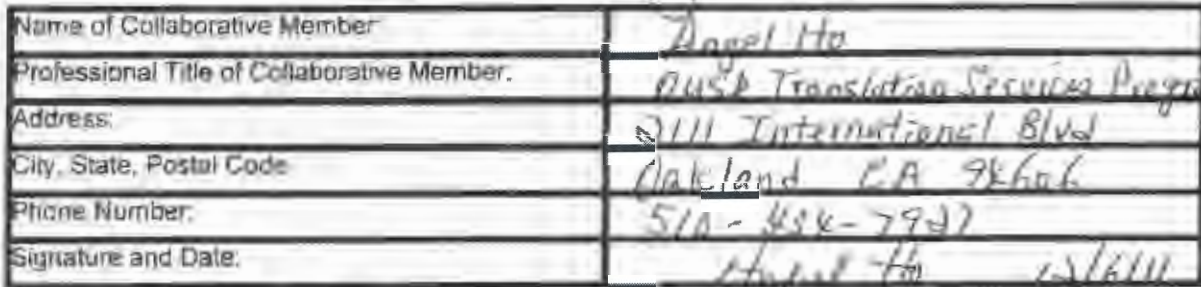 Name of Collaborative Member: Angel Ho
Professional Title of Collaborative Member: Translation Services
Address: International Blvd
City, State, Postal Code Oakland CA
Phone Number: 510-
Signature and Date: Ho 12/6/11